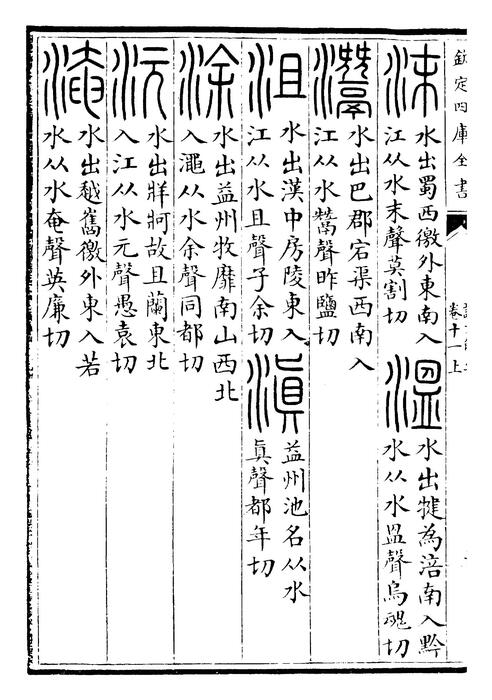 欽定四庫全書
卷十一上
沫
水出蜀西徼外東南入
江从水末聲莫割切
溫
水出犍為涪南入黔
水从水𥁕聲烏魂切
灊
水出巴郡宕渠西南入
江从水鬵聲昨鹽切
沮
水出漢中房陵東入
江从水且聲子余切
滇
益州池名从水
眞聲都年切
涂
水出益州牧靡南山西北
入澠从水余聲同都切
沅
水出牂牁故且蘭東北
入江从水元聲愚袁切
淹
水出越巂徼外東入若
水从水奄聲英廉切